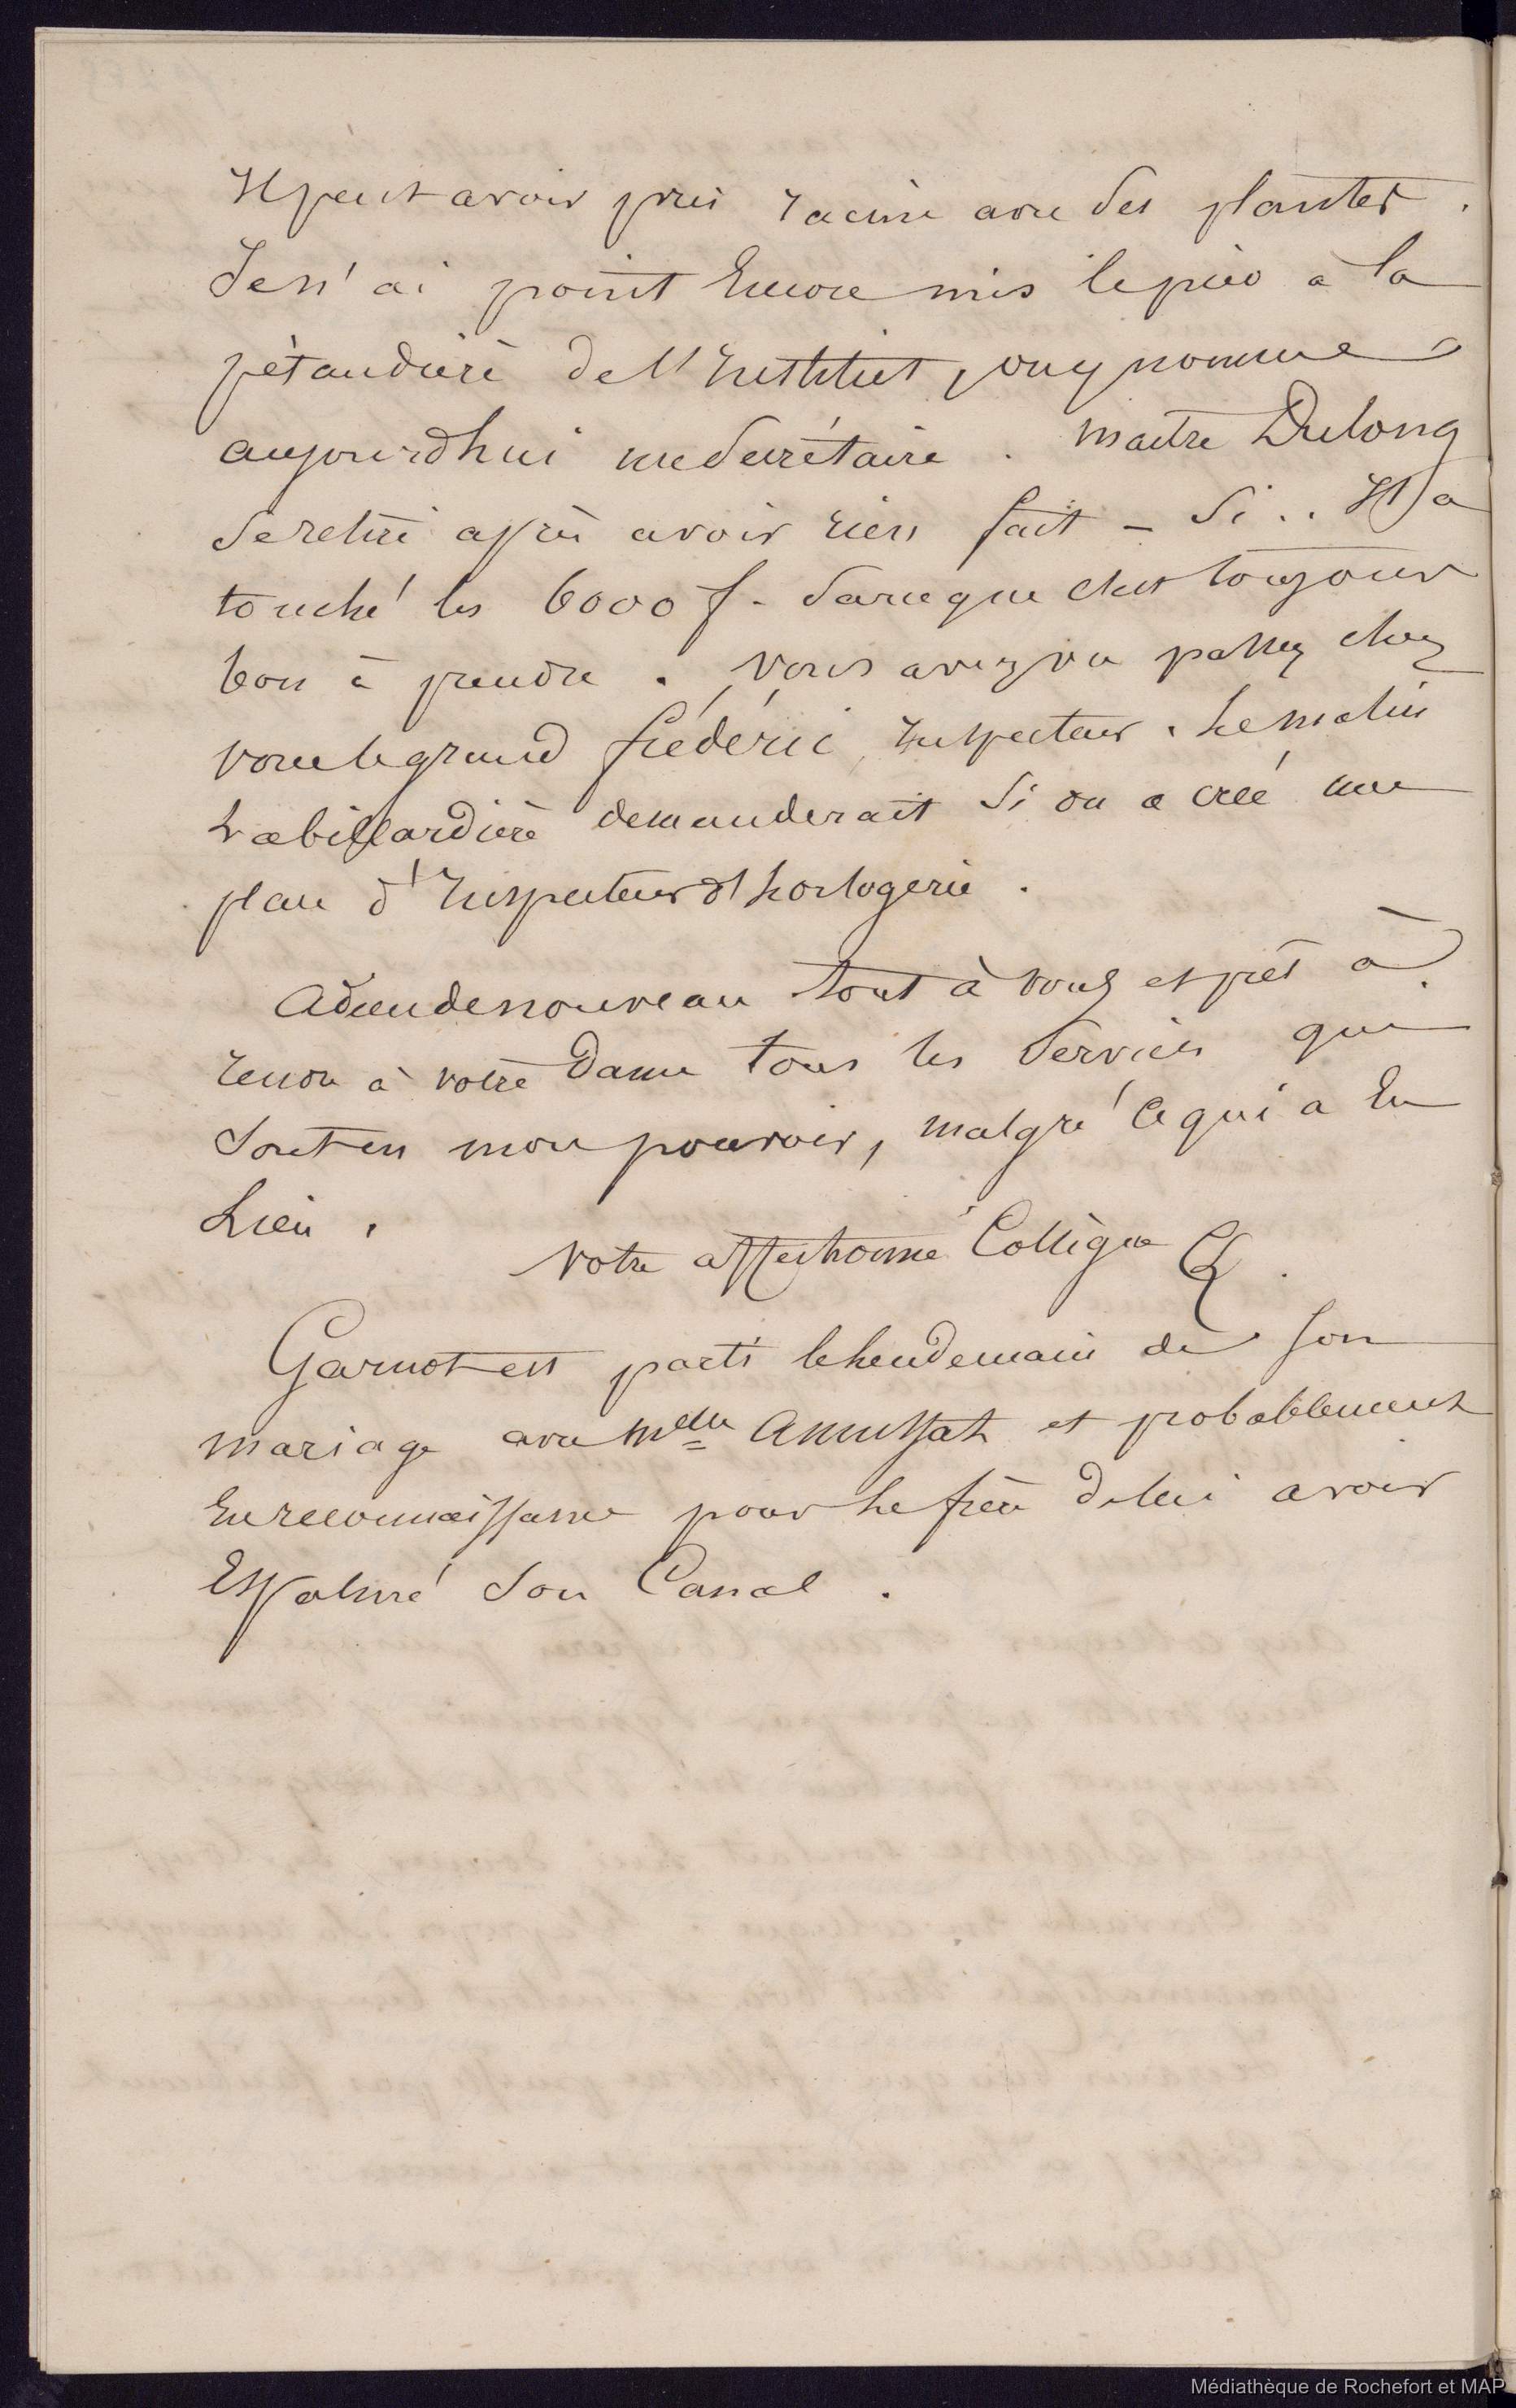 Il peut avoir pris racine avec des plantes.
Je n'ai point Encore mis le pied à la
pétaudière de l'Institut, on y nomme
aujourd'hui un Secrétaire. Maitre Dulong
se retire après avoir rien fait – Si.. Il a
touché les 6000 f. parceque c'est toujours
bon à prendre. Vous avez vu passer chez
vous le grand frédéric, Inspecteur. Le malin
Labillardière demanderait Si on a créé une
place d'Inspecteur d'horlogerie.
Adieu de nouveau tout à vous et prêt à
rendre à votre Dame tous les Services qui
Sont en mon pouvoir, malgré ce qui a Eu
Lieu.
Votre affectionné Collègue
Garnot est parti le lendemain de son
mariage avec Melle Amussat et probablement
En reconnaissance pour le frère de lui avoir
Espalmé Son Canal.
Médiathèque de Rochefort et MAP